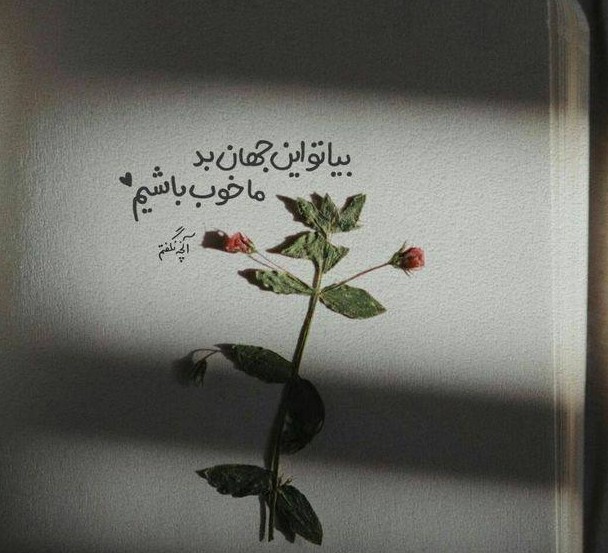 بیا تو این جهان بد
ما خوب باشیم
آنچه نگفتم